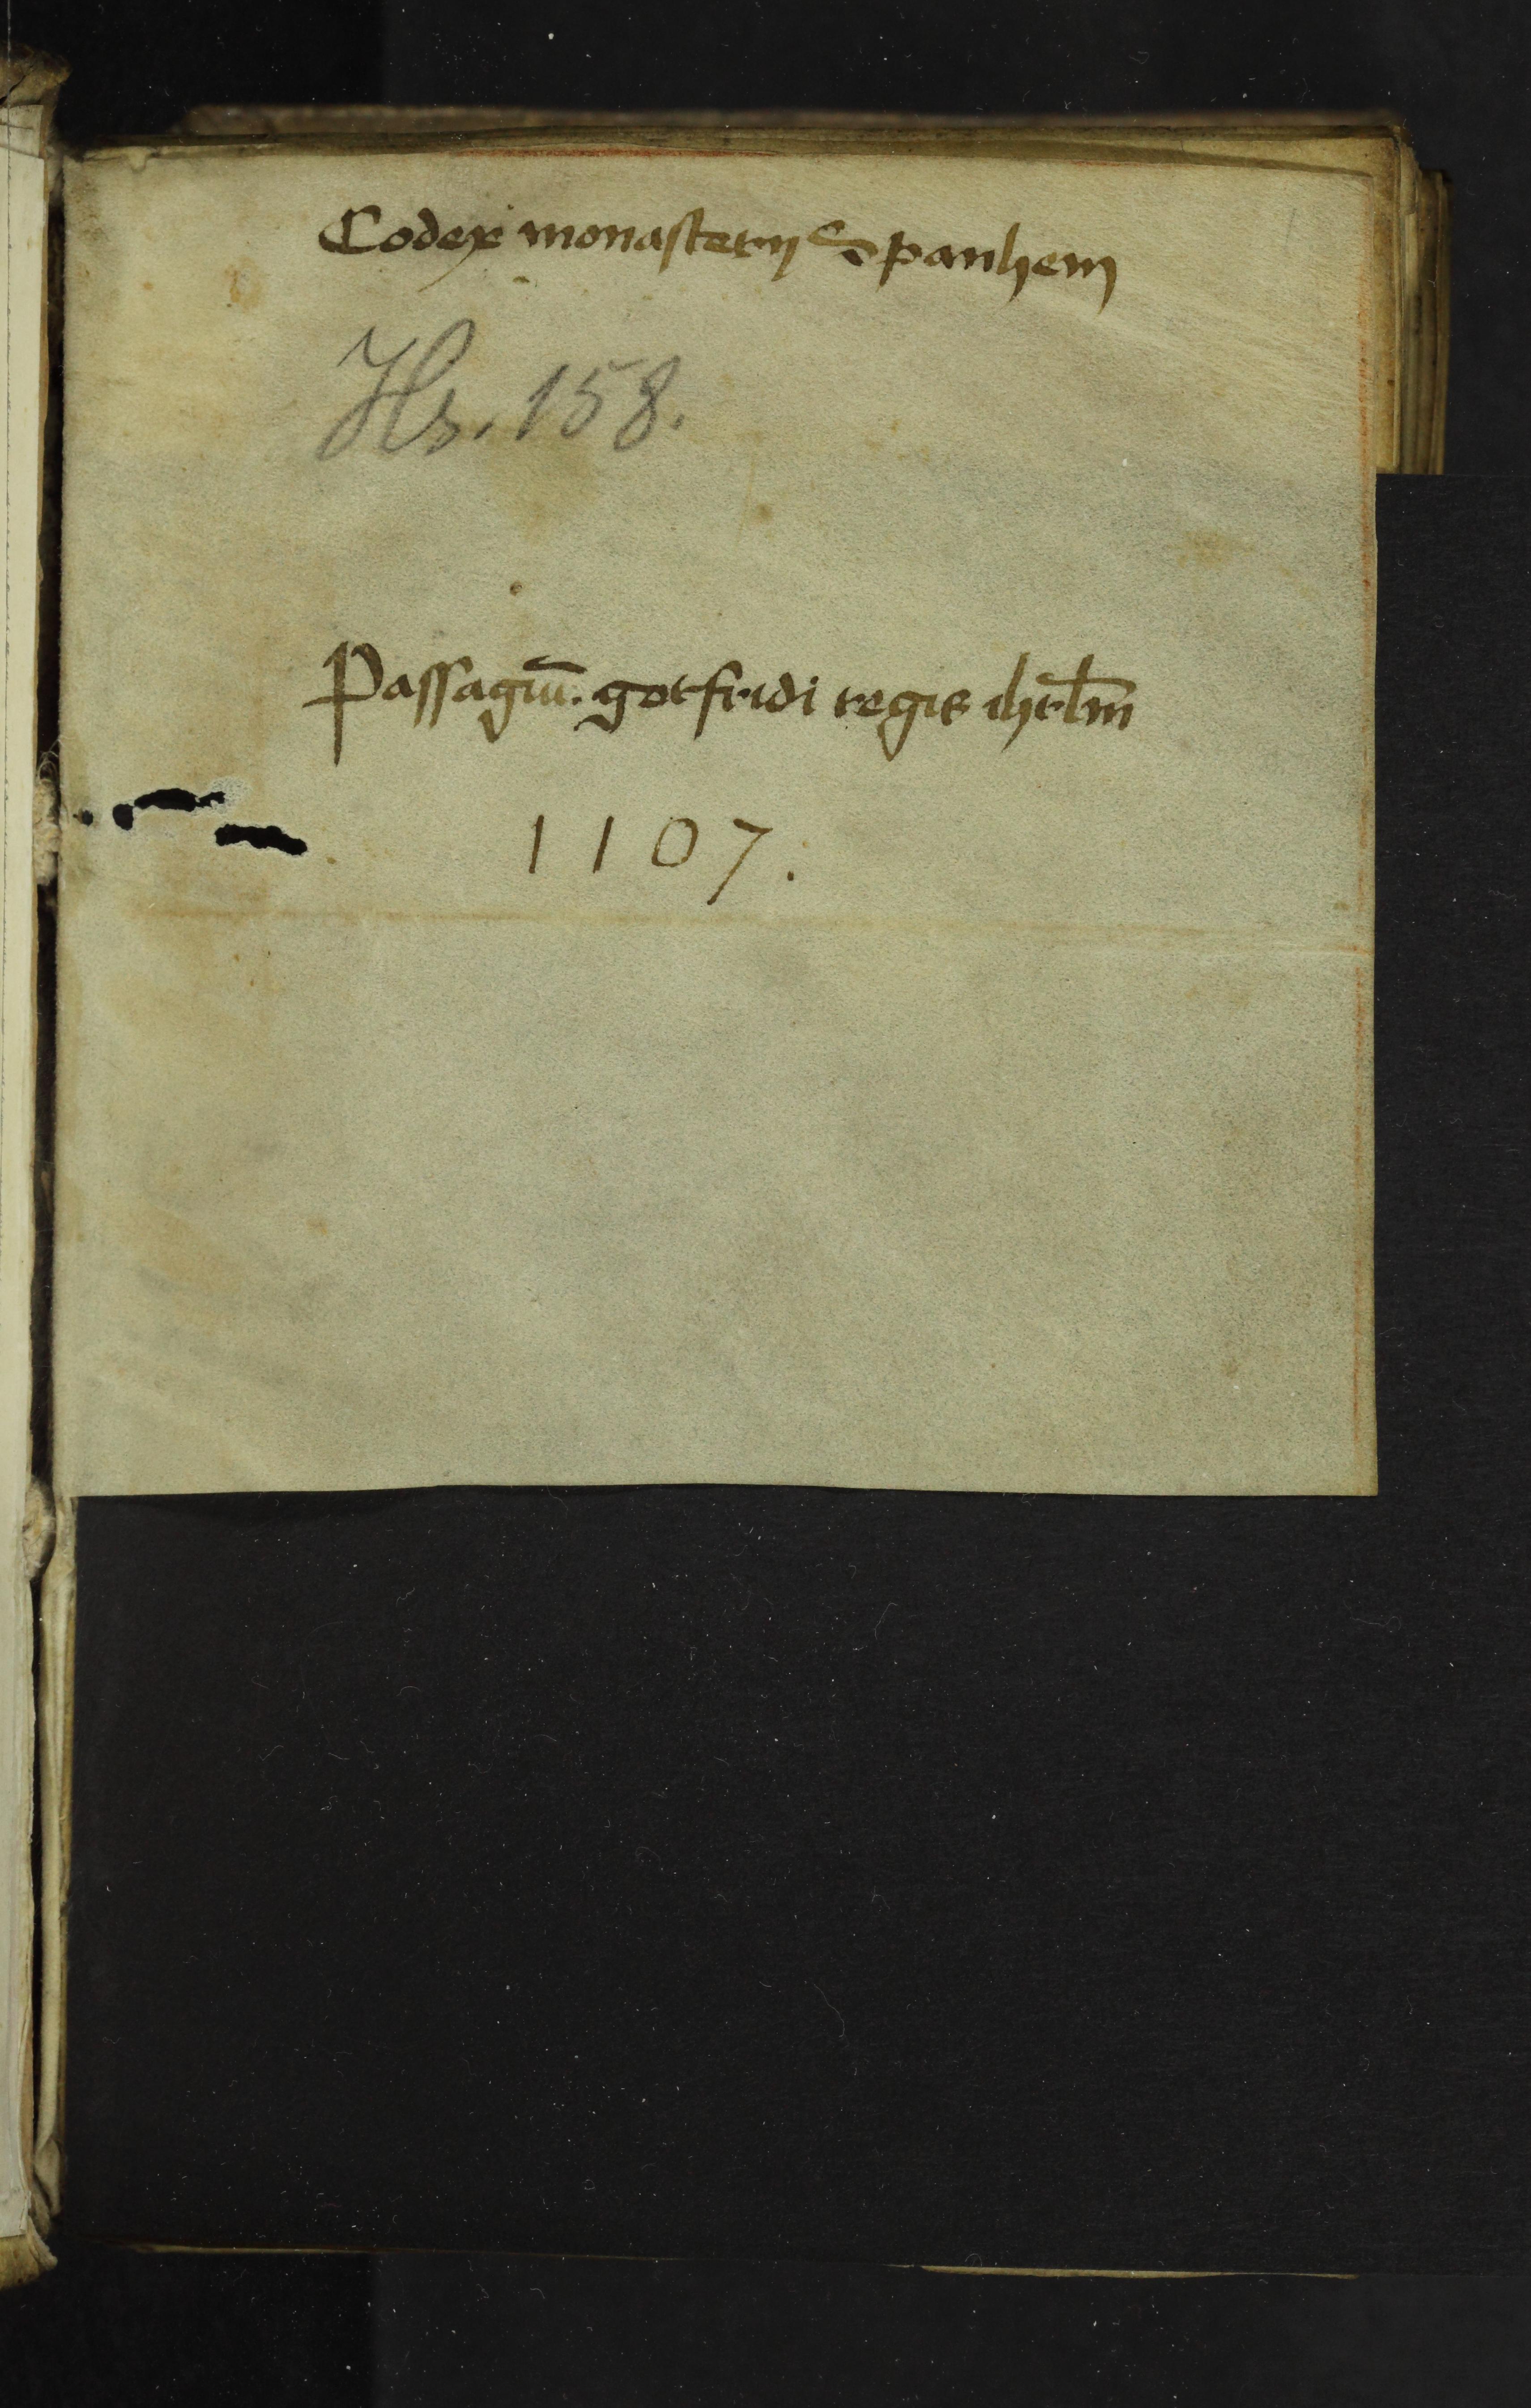 Codex monasterij Spanhem
1
Hs. 158.
Passagiū. gotfridi regis ihrl̄m
1107.